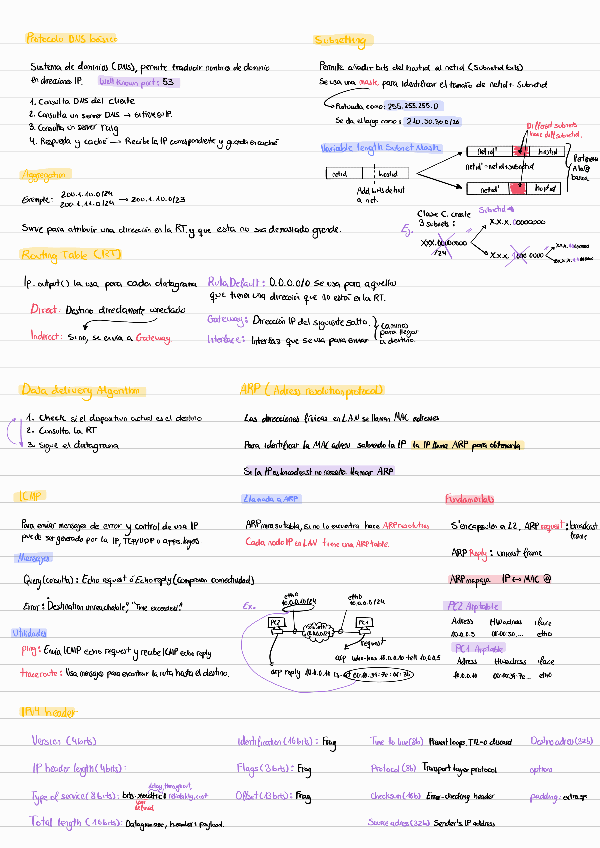 Protocolo DNS básico
Sistema de dominios (DNS), permite traducir nombres de dominio
en direcciones IP. Well known port: 53
1. Consulta DNS del cliente
2. Consulta un server DNS → obtiene IP.
3. Consulta un server
4. Respuesta y caché → Recibe la IP correspondiente y guarda en caché
Subnetting
Permite añadir bits del hostid al netid (Subnetid bits)
Se usa una mask para identificar el tamaño de netid + Subnetid
Anotada como: 255.255.255.0
Se da al largo como: 210.30.30.0/26
Variable length Subnet Mask
netid hostid
Add bits de host
a net.
Different subnets
have diff subnetid.
netid hostid
netid' = netid+subnetid
netid' hostid
Aggregation
Exemple: 200.1.10.0/24
200.1.11.0/24 → 200.1.10.0/23
Sirve para atribuir una dirección en la RT y que esta no sea demasiado grande.
Ej.
Clase C. create
3 subnets:
XXX.00000000
/24
Subnetid
X.X.X.00000000
X.X.X.10000000
Routing Table (RT)
Ip.output() la usa para cada datagrama
Direct: Destino directamente conectado
Indirect: Si no, se envia a Gateway
Ruta Default: 0.0.0.0/0 se usa para aquello
que tiene una dirección que no está en la RT.
Gateway: Dirección IP del siguiente salto.
Interface: Interfaz que se usa para enviar
caminos
para llegar
a destino.
Data delivery Algorithm
1. Check si el dispositivo actual es el destino
2. Consulta la RT
3. Sigue el datagrama
ARP (Adress resolution protocol)
Las direcciones físicas en LAN se llaman MAC adresses
Para identificar la MAC adress sabiendo la IP la IP llama ARP para obtenerla
Si la IP es broadcast no necesita llamar ARP
ICMP
Para enviar mensajes de error y control de una IP
puede ser generado por la IP, TCP/UDP o apps. layers
Mensajes
Query (consulta): Echo request ó Echo reply (comprueban conectividad)
Error: "Destination unreachable", "Time exceeded"
Utilidades
Ping: Envía ICMP echo request y recibe ICMP echo reply
traceroute: Usa mensajes para encontrar la ruta hasta el destino.
Llamada a ARP
ARP mira su tabla, si no lo encuentra hace ARP resolution
Cada nodo IP en LAN tiene una ARP table.
Ex.
eth0
10.0.0.10/24
eth0
10.0.0.5/24
PC2
PC1
request
arp who-has 10.0.0.10 tell 10.0.0.5
arp reply 10.0.0.10 is-at
Fundamentals
S'encapsulen en L2, ARP request: broadcast
frame
ARP Reply: unicast frame
ARP mapeja IP ↔ MAC @
PC2 Arp table
Adress HWadress iface
10.0.0.5 00:00:30... eth0
PC1 Arp table
Adress HWadress iface
10.0.0.10 eth0
IPv4 header
Version (4 bits)
IP header length (4 bits):
Type of service (8 bits): bits xxxdtrc0
delay, throughput,
reliability, cost
user
defined
Total length (16 bits): Datagram size, header + payload.
Identification (16 bits): Frag
Flags (3 bits): Frag
Offset (13 bits): Frag
Time to live (8b) Prevent loops. TTL=0 discard
Protocol (8b) Transport layer protocol
Checksum (16b) Error-checking header
Source adress (32b) Sender's IP address
Destino adress (32b)
options
padding: extra sp